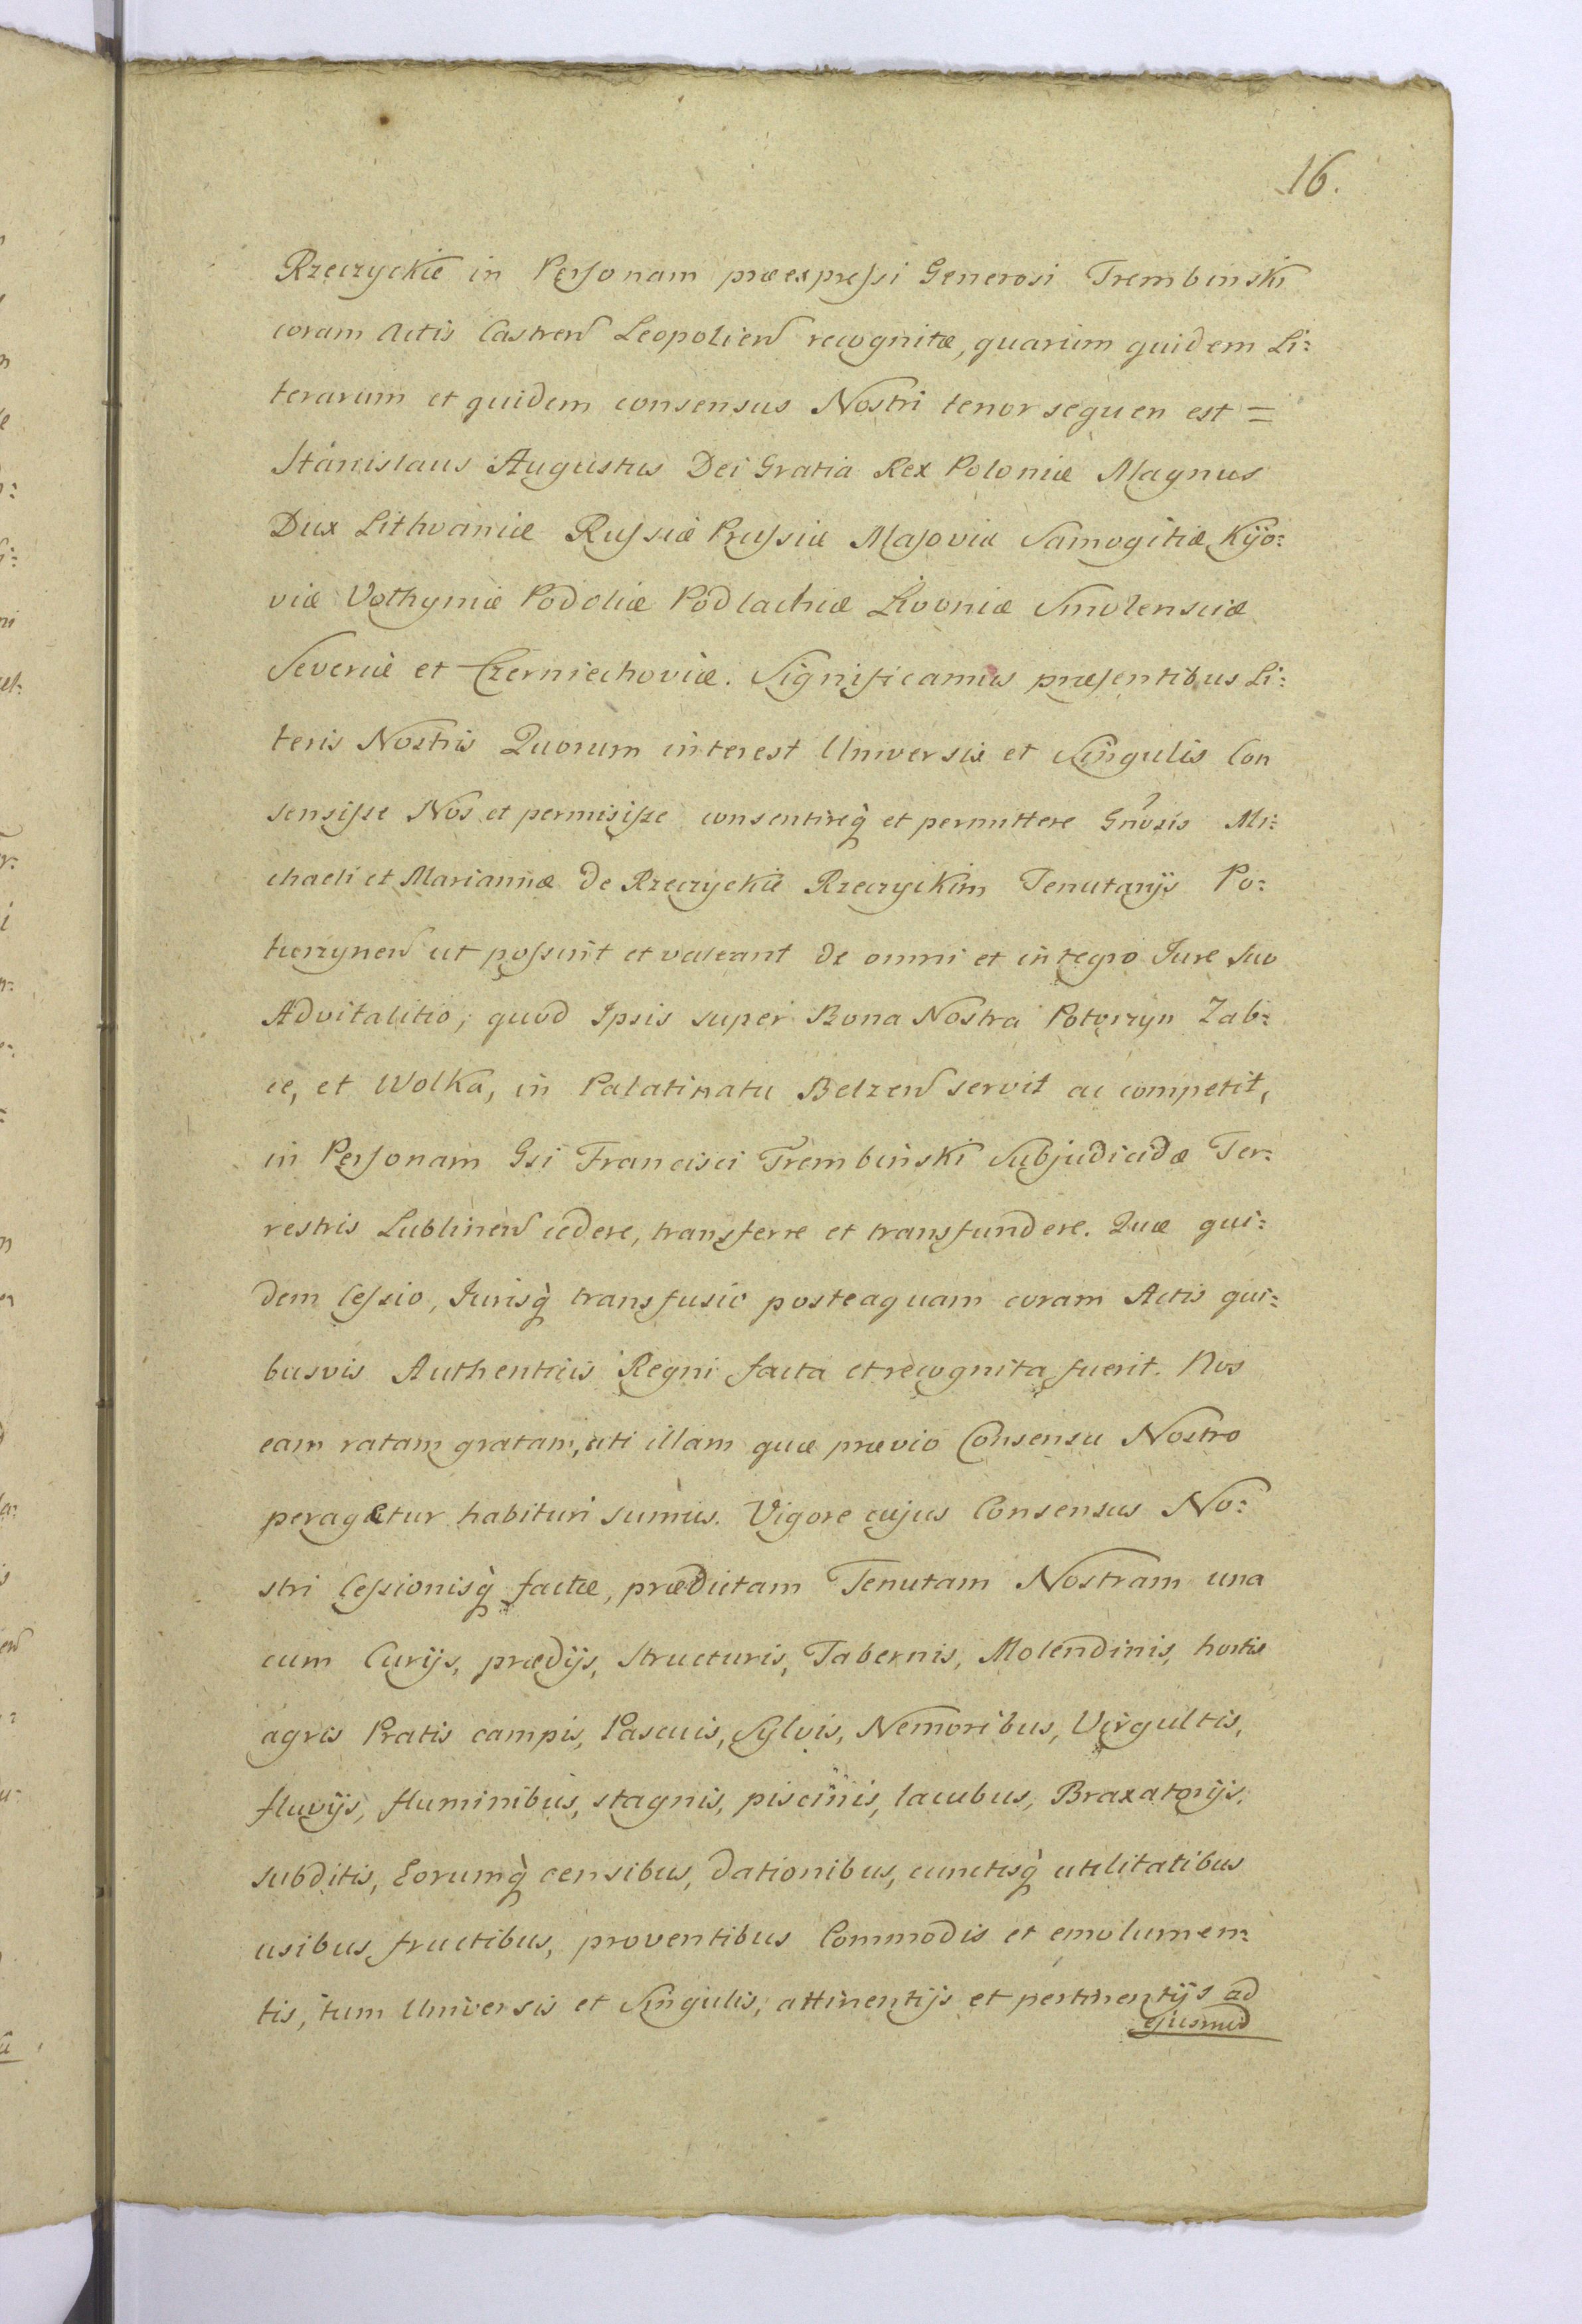 16.
Rzeczyckie in Personam præexpressi Generosi Trembinski
coram Actis Castren Leopolien recognitæ, quarum quidem Li:
terarum et quidem consensus Nostri tenor sequen est =
Stanislaus Augustus Dei Gratia Rex Poloniæ Magnus
Dux Lithvaniæ Russiæ Prussiæ Masoviæ Samogitiæ Kijo:
viæ Volhyniæ Podoliæ Podlachiæ Livoniæ Smolensciæ
Severiæ et Czerniechoviæ. Significamus præsentibus Li:
teris Nostris Quorum interest Universis et Singulis Con
sensisse Nos et permisisse consentireq̀ et permittere Gnosis Mi:
chaeli et Mariannæ de Rzeczyckie Rzeczyckim Tenutarijs Po:
turzynen ut possint et valeant de omni et integro Jure suo
Advitalitio, quod Ipsis super Bona Nostra Potorzyn Zab:
ce, et Wolka, in Palatinatu Belzen servit ac competit,
in Personam Gsi Francisci Trembinski Subjudicidæ Ter:
restris Lublinen cedere, transferre et transfundere. Quæ qui:
dem Cessio, Jurisq̀ transfusio posteaquam coram Actis qui:
busvis Authenticis Regni facta et recognita fuerit. Nos
eam ratam gratam, uti illam quæ prævio Consensu Nostro
peragetur habituri sumus. Vigore cujus Consensus No:
stri Cessionisq̀ factæ, prædictam Tenutam Nostram una
cum Curijs, prædijs, structuris, Tabernis, Molendinis, hortis
agris Pratis campis, Pascuis, Sylvis, Nemoribus, Virgultis,
fluvijs, fluminibus, stagnis, piscinis, lacubus, Braxatorijs,
subditis, Eorumq̀ censibus, dationibus, cunctisq̀ utilitatibus
usibus fructibus, proventibus Commodis et emolumen:
tis, tum Universis et Singulis, attinentijs et pertinentijs ad
ejusmod